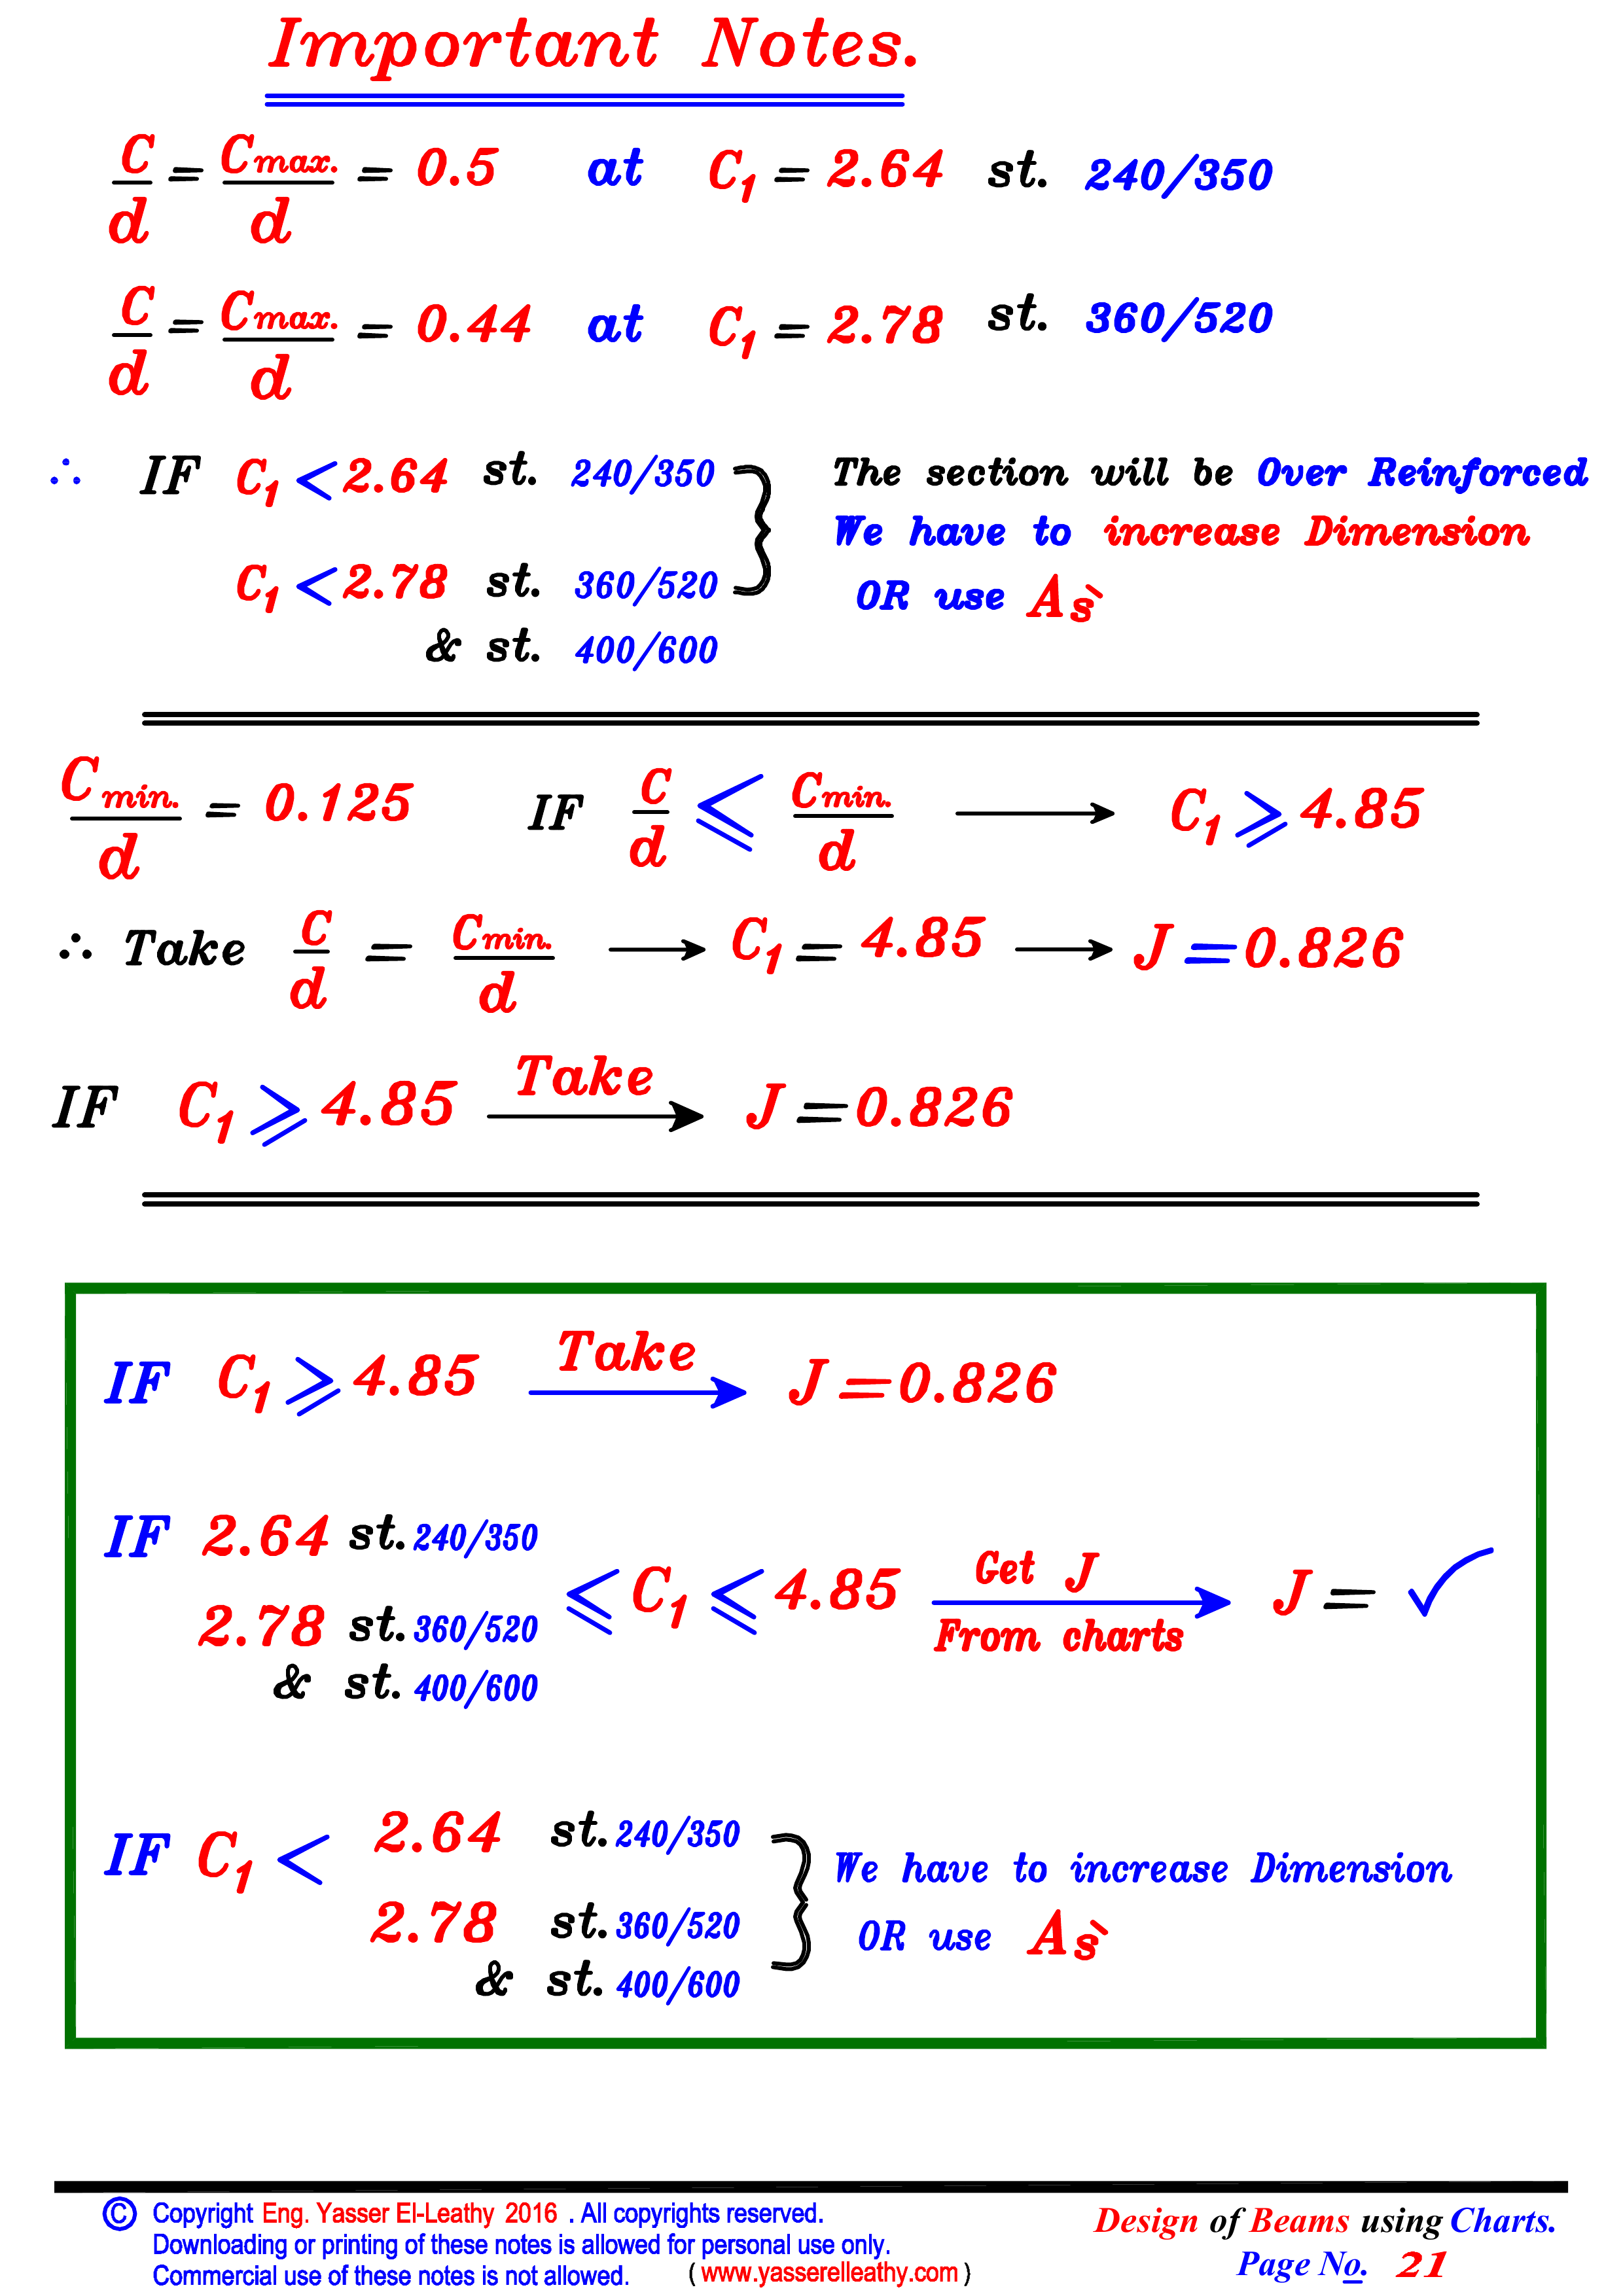 Important Notes.
C/d = Cmax./d = 0.5 at C1 = 2.64 st. 240/350
C/d = Cmax./d = 0.44 at C1 = 2.78 st. 360/520
∴ IF C1 < 2.64 st. 240/350 } The section will be Over Reinforced
We have to increase Dimension
C1 < 2.78 st. 360/520 OR use As`
& st. 400/600
Cmin./d = 0.125 IF C/d ⩽ Cmin./d → C1 ⩾ 4.85
∴ Take C/d = Cmin./d → C1 = 4.85 → J = 0.826
IF C1 ⩾ 4.85 Take → J = 0.826
IF C1 ⩾ 4.85 Take → J = 0.826
IF 2.64 st. 240/350
2.78 st. 360/520 ⩽ C1 ⩽ 4.85 Get J From charts → J = ✓
& st. 400/600
IF C1 < 2.64 st. 240/350 } We have to increase Dimension
2.78 st. 360/520 OR use As`
& st. 400/600
© Copyright Eng. Yasser El-Leathy 2016 . All copyrights reserved.
Downloading or printing of these notes is allowed for personal use only.
Commercial use of these notes is not allowed. ( www.yasserelleathy.com )
Design of Beams using Charts.
Page No. 21